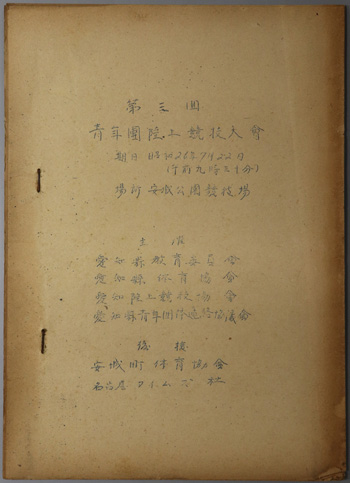 第三回
青年團陸上競技大會
期日 昭和26年7月22日
(午前九時三十分)
場所 安城公園競技場
主催
愛知縣教育委員會
愛知縣体育協會
愛知陸上競技協會
愛知縣青年團体連絡協議會
後援
安城町体育協會
名古屋タイムズ社